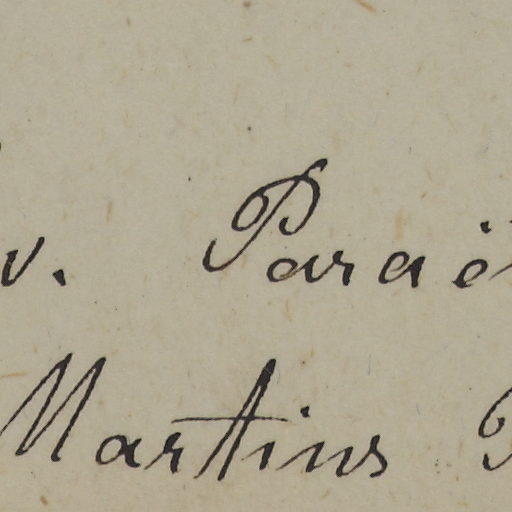 v. Paraë
Martins